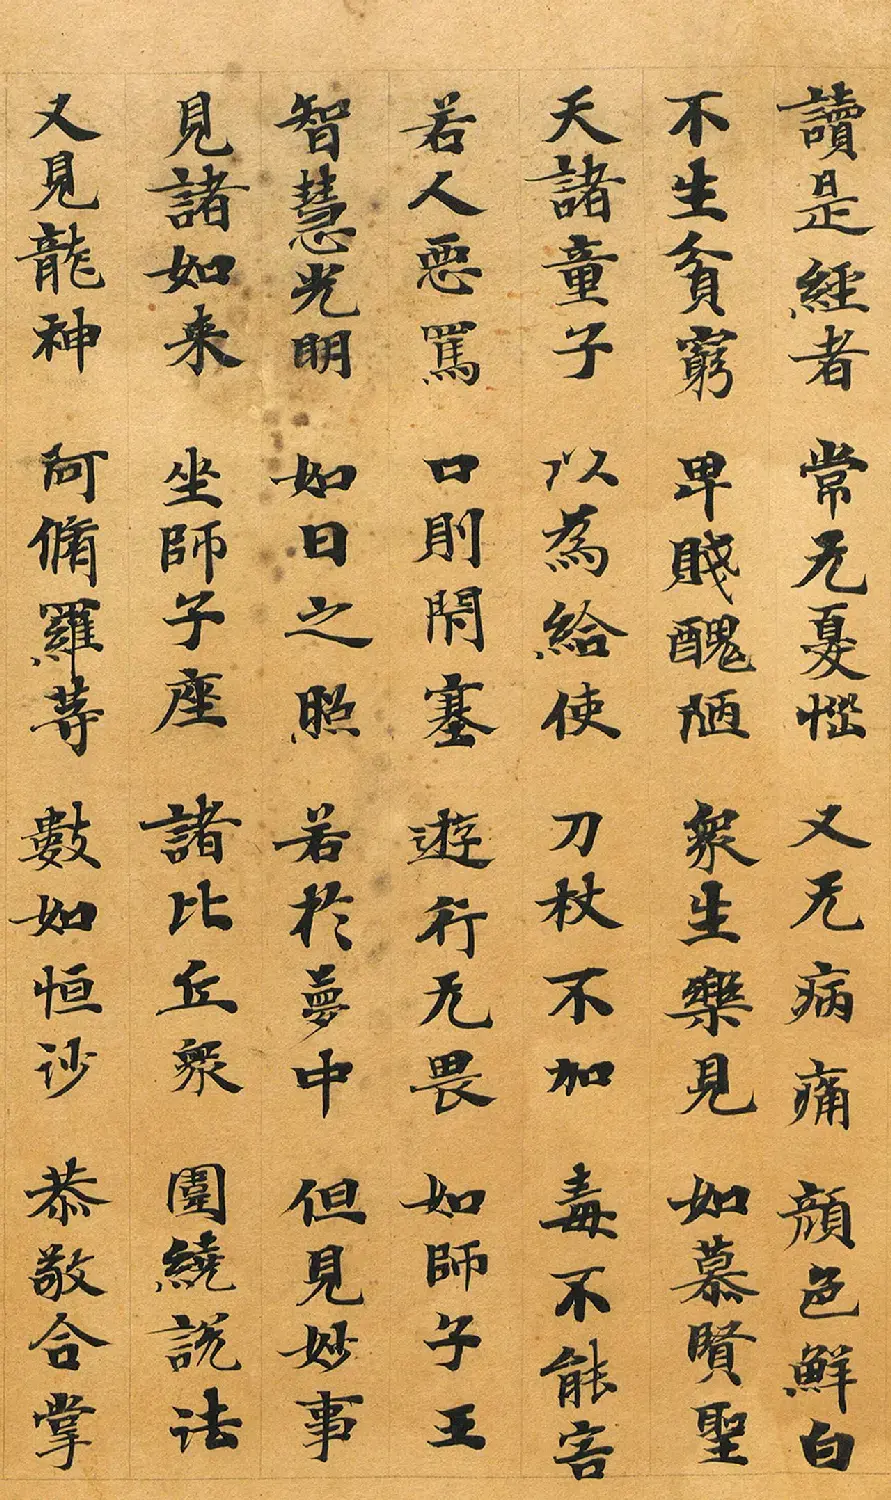 讀是經者 常无憂惱 又无病痛 顏色鮮白
不生貧窮 卑賤醜陋 衆生樂見 如慕賢聖
天諸童子 以為給使 刀杖不加 毒不能害
若人惡罵 口則閇塞 遊行无畏 如師子王
智慧光明 如日之照 若於夢中 但見妙事
見諸如来 坐師子座 諸比丘衆 圍繞說法
又見龍神 阿脩羅等 數如恒沙 恭敬合掌